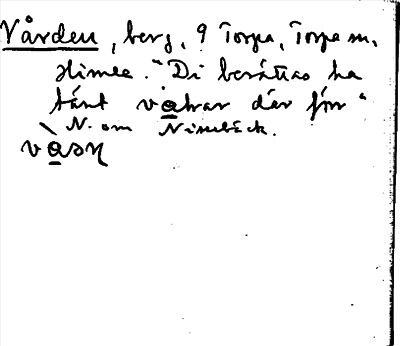 Vården, berg, 9 Torpa, Torpa sn,
Himle. "Di berättas ha
tänt vaḥar där förr"
N. om Ninebäck.
vàsn